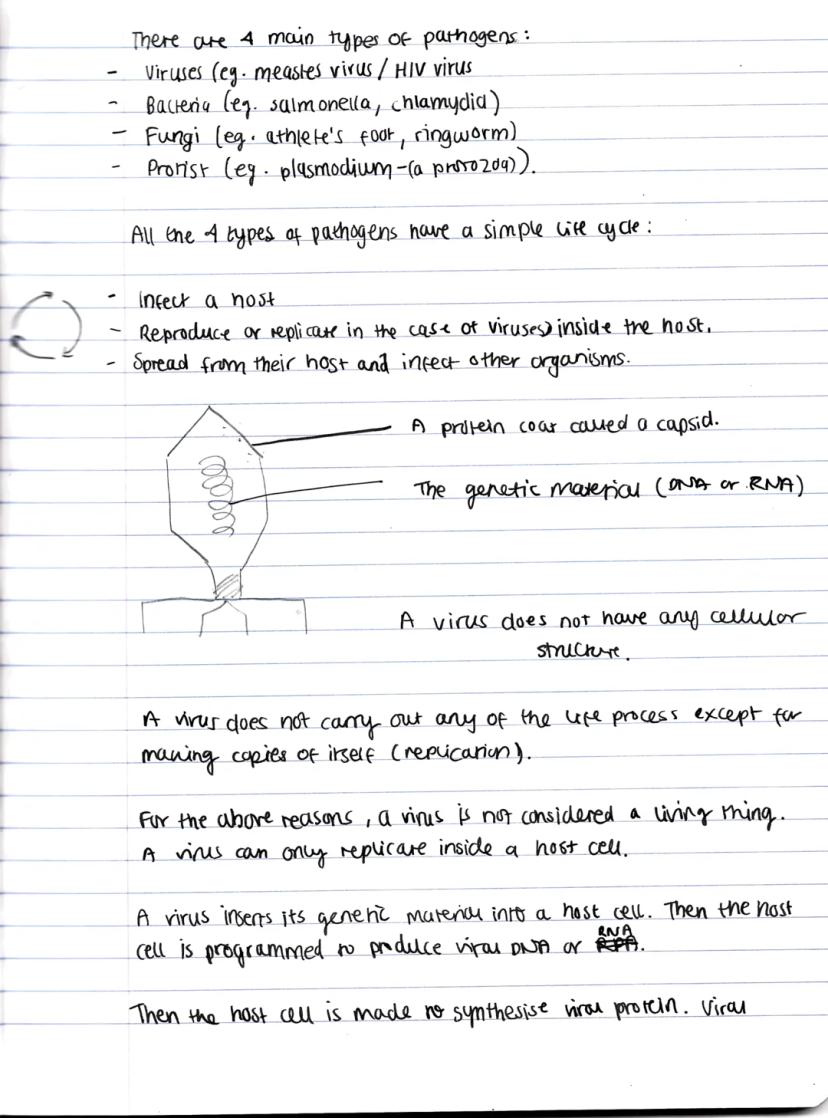 There are 4 main types of pathogens:
- Viruses (eg. measles virus / HIV virus
- Bacteria (eg. salmonella, chlamydia)
- Fungi (eg. athlete's foot, ringworm)
- Protist (eg. plasmodium - (a protozoa)).
All the 4 types of pathogens have a simple life cycle:
- Infect a host
- Reproduce or replicate in the case of viruses) inside the host.
- Spread from their host and infect other organisms.
A protein coat called a capsid.
The genetic material (DNA or RNA)
A virus does not have any cellular
structure.
A virus does not carry out any of the life process except for
making copies of itself (replication).
For the above reasons, a virus is not considered a living thing.
A virus can only replicate inside a host cell.
A virus inserts its genetic material into a host cell. Then the host
cell is programmed to produce viral DNA or RNA.
Then the host cell is made to synthesise viral protein. Viral